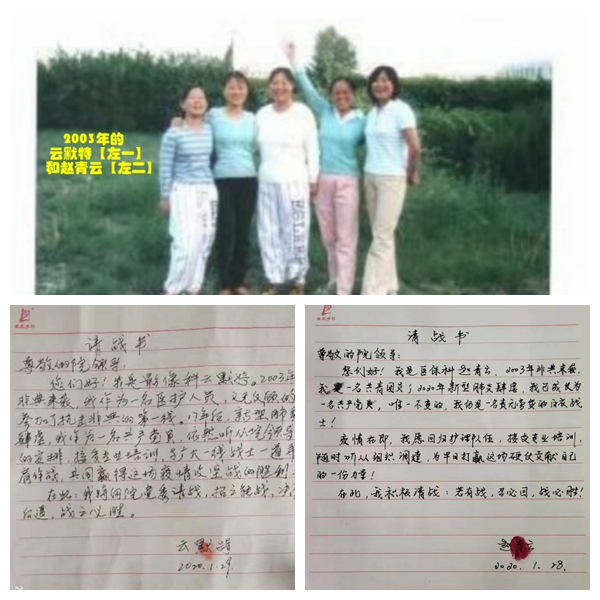 2003年的
云默特【左一】
和赵青云【左二】
请战书
尊敬的院领导:
您们好!我是影像科云默特。2003年
非典来袭,我作为一名医护人员,义无反顾的
参加了抗击非典的第一线。17年后,新型肺
肆虐,我作为一名共产党员,依然听从院领导
的安排,接受专业培训,与广大一线战士一道并
肩作战,共同赢得这场疫情攻坚战的胜利
在此:我特向院党委请战,招之能战,决
后退,战之必胜。
云默特
2020.1.29
请战书
尊敬的院领导:
您们好!我是医保科赵青云。2003年非典来袭,
我是一名共青团员,2020年新型肺炎肆虐,我已成长为
一名共产党员,唯一不变的,我仍是一名责无旁贷的白衣战
士!
疫情在即,我愿回归护理队伍,接受专业培训,
随时听从组织调遣,为早日打赢这场硬仗贡献自己
的一份力量!
在此,我积极请战:若有战,召必回,战必胜!
赵青云
2020.1.28.